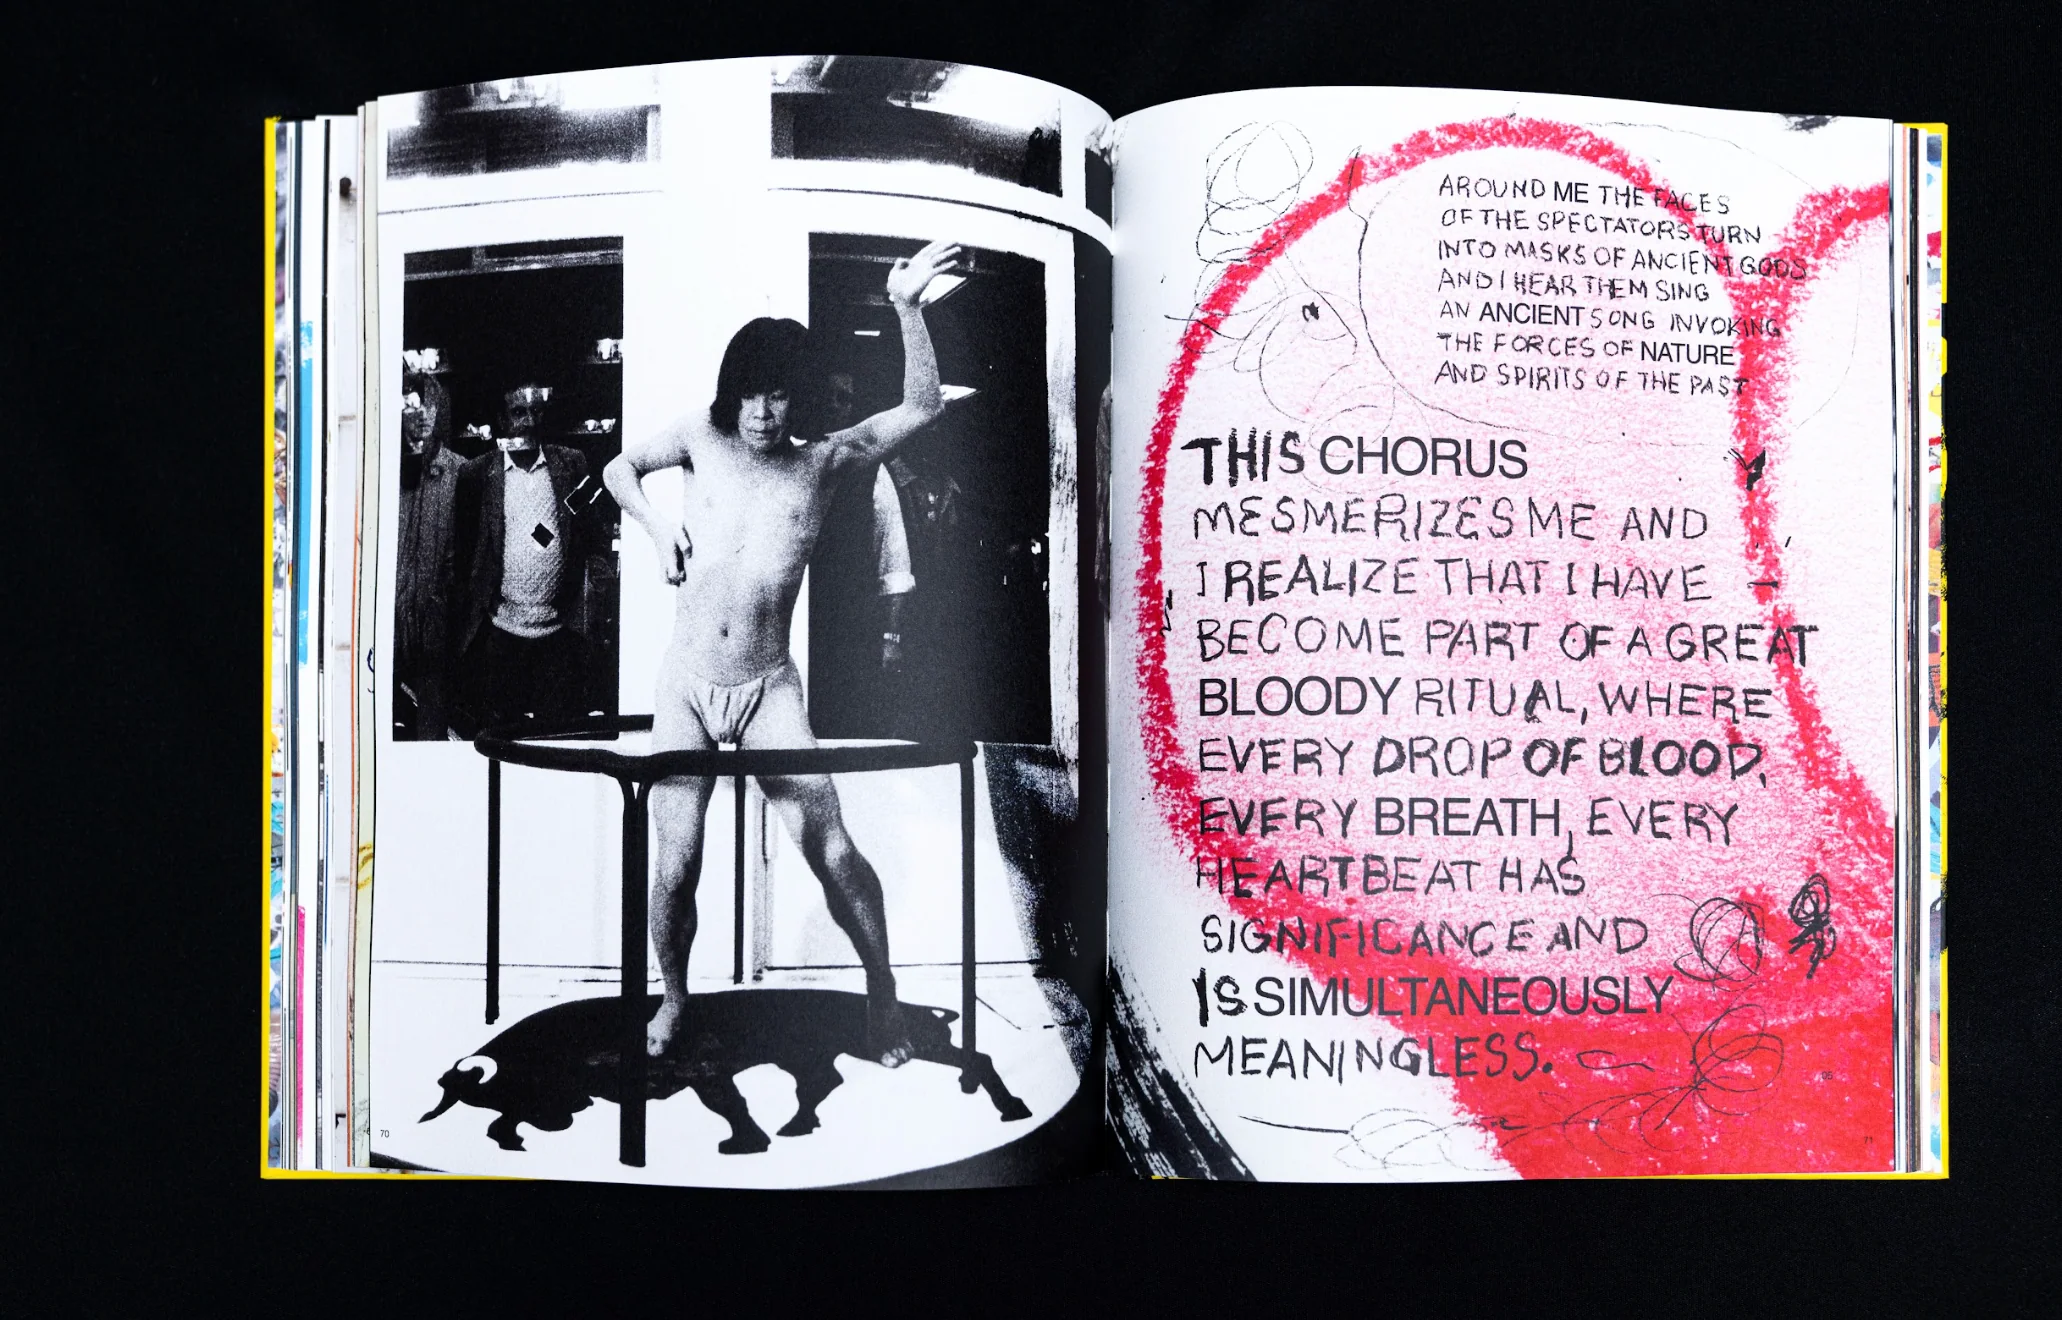 70
AROUND ME THE FACES
OF THE SPECTATORS TURN
INTO MASKS OF ANCIENT GODS
AND I HEAR THEM SING
AN ANCIENT SONG INVOKING
THE FORCES OF NATURE
AND SPIRITS OF THE PAST
THIS CHORUS
MESMERIZES ME AND
I REALIZE THAT I HAVE
BECOME PART OF A GREAT
BLOODY RITUAL, WHERE
EVERY DROP OF BLOOD,
EVERY BREATH, EVERY
HEARTBEAT HAS
SIGNIFICANCE AND
IS SIMULTANEOUSLY
MEANINGLESS.
05
71